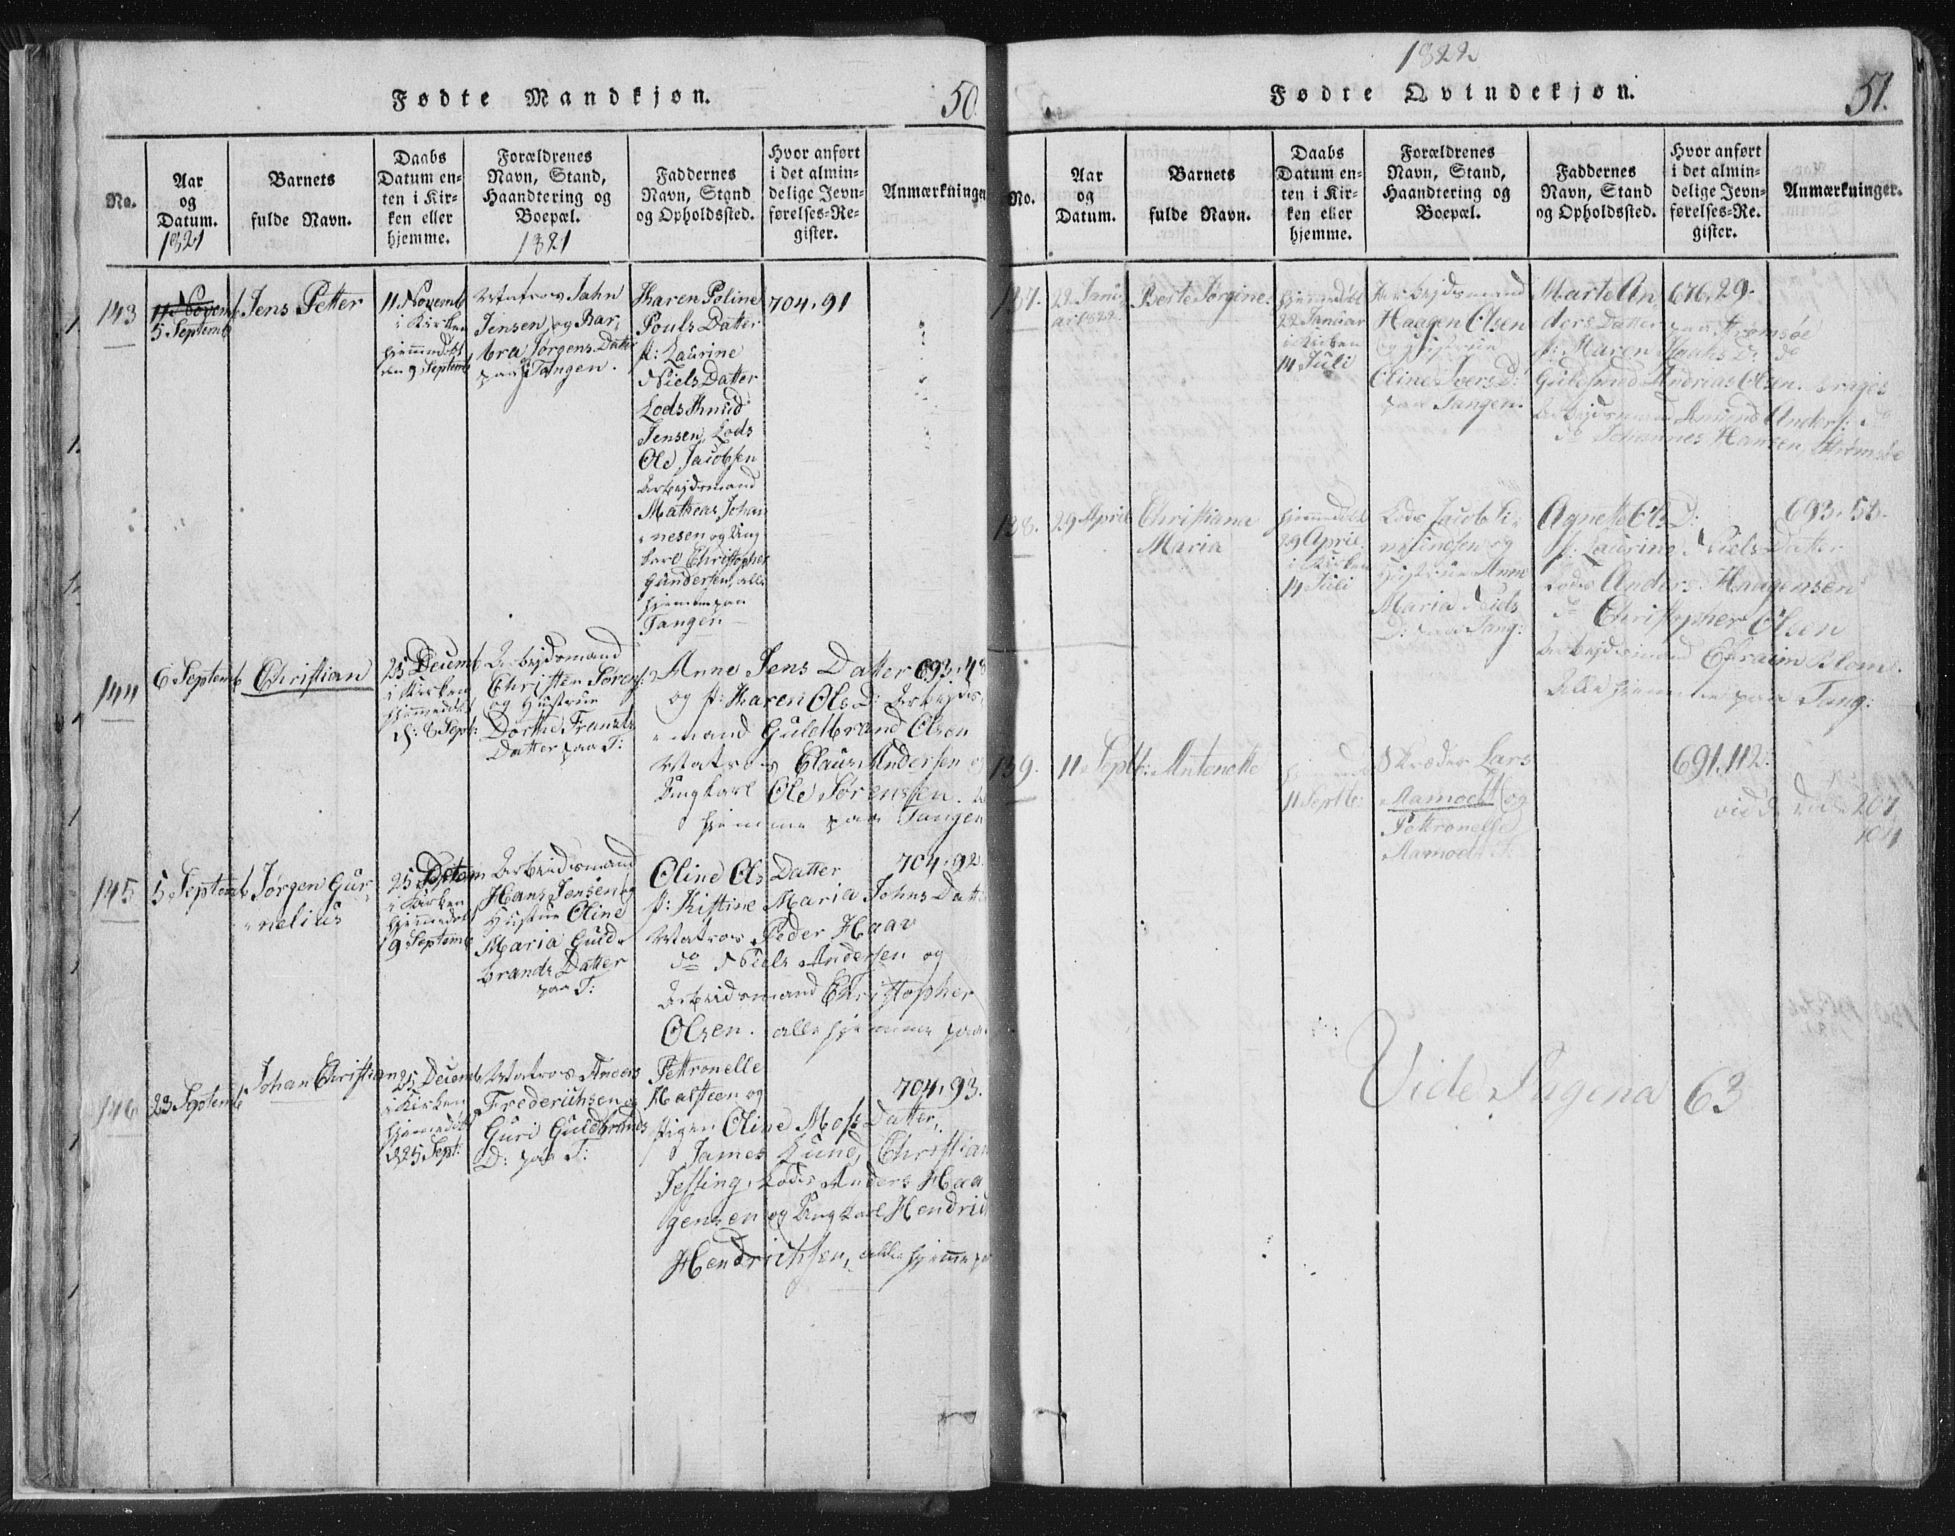 Fødte Mandkjøn.
50.
No.
Aar
og
Datum.
1821
Barnets
fulde Navn.
Daabs
Datum en-
ten i Kir-
ken eller
hjemme.
Forældrenes
Navn, Stand,
Haandtering og
Boepæl.
1821
Faddernes
Navn, Stand
og Opholdssted.
Hvor anført
i det almin-
delige Jevn-
førelses-Re-
gister.
Anmærkninger
143
11 Novemb
5 Septemb
Jens Petter
11 Novemb
i Kirken
hjemmedøbt
den 9 Septemb
Matros Jahn
Jensen og Bar,
bra Jørgens Datter
paa Tangen.
Karen Poline
Pouls Datter
p: Laurine
Niels Datter
Lods Knud
Jensen, Lods
Ole Jacobsen
Arbejdsmand
Matheas Johan
nesen og Ung
karl Christopher
Gundersen, alle
hjemme paa
Tangen
704. 91
144
6 Septemb
Christian
25 Decemb
i Kirken
hjemmedøbt
d: 8 Sept:
Arbejdsmand
Christen Sørens:
og Hustrue
Dorthe Frantz
Datter paa T:
Anne Jens Datter
og p: Karen Ols D: Arbejds,
mand Guldbrand Olsen
Matros Claus Andersen og
Ungkarl Ole Sørensen.
hjemme paa Tangen
693. 48
145
5 Septemb
Jørgen Gur,
nelius
25
i Kirken
hjemmedøbt
9 Septemb
Arbeidsmand
Hans Jensen og
Hustrue Oline
Maria Guld
brands Datter
paa T:
Oline Ols Datter
p: Kistine Maria Johns Datter
Matros Peder Haav
do Niels Andersen og
Arbeidsmand Christopher
Olsen. alle hjemme paa
704. 92.
146
23 Septemb
Johan Christian
25 Decemb
i Kirken
hjemmedøbt
d 25 Sept:
Matros Anders
Frederichsen og
Guri Guldbrands
D: paa T:
Pettronelle
Halsteen og
pigen Oline Mos: Datter,
James Lund, Christian
Jessing, Lods Anders Haa
gensen og Ungkarl Hendrich
Hendrichsen, alle hjemme paa
704. 93.
1822
Fødte Qvindekjøn.
51.
No.
Aar
og
Datum.
Barnets
fulde Navn.
Daabs
Datum en-
ten i Kir-
ken eller
hjemme.
Forældrenes
Navn, Stand,
Haandtering og
Boepæl.
Faddernes
Navn, Stand
og Opholdssted.
Hvor anført
i det almin-
delige Jevn-
førelses-Re-
gister.
Anmærkninger.
137.
22 Janu
ar 1822
Berte Jørgine
hjemmedøbt
22 Januar
i Kirken
14 Juli
Arbejdsmand
Haagen Olsen
og Hustrue
Oline Ivers D:
paa Tangen.
Marte An
ders Datter paa Strømsøe
p: Maren Isaks D: do
Gulbrand Andreas Olsen.
Arbejdsmand Amund Anders: do
do Johannes Hansen, Strømsøe
676. 29.
138.
29 April
Christiana
Maria
hjemmedøbt
29 April
i Kirken
14 Juli
Lods Jacob Si,
mensen og
Hustrue Anne
Maria Niels
D: paa Tang:
Agnete Ols D:
p: Laurine Niels Datter
Lods Anders Haagensen
do Christopher Olsen
Arbejdsmand Efraim Blom.
Alle hjemme paa Tang:
693. 52.
139.
11 Septb:
Antonette
hjemme
11 Septbr:
Skræder Lars
Aamodt og
Pettronelle
Aamodt
691. 112:
207
Vide Pagina 63